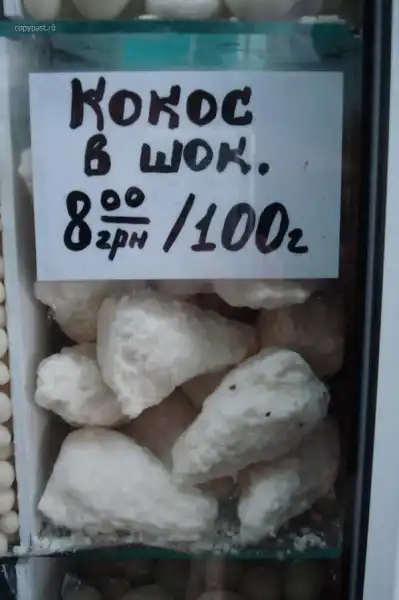 copypast.ru
Кокос
в шок.
8 00 грн /100г